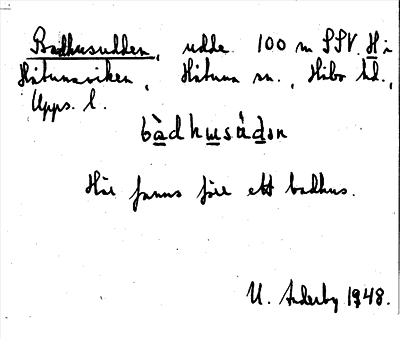 Badhusudden, udde 100 m SSV Hi
Håtunaviken, Håtuna sn., Håbo hd.,
Upps. l.
bàdhusùdən
Här fanns förr ett badhus.
U. 1948.